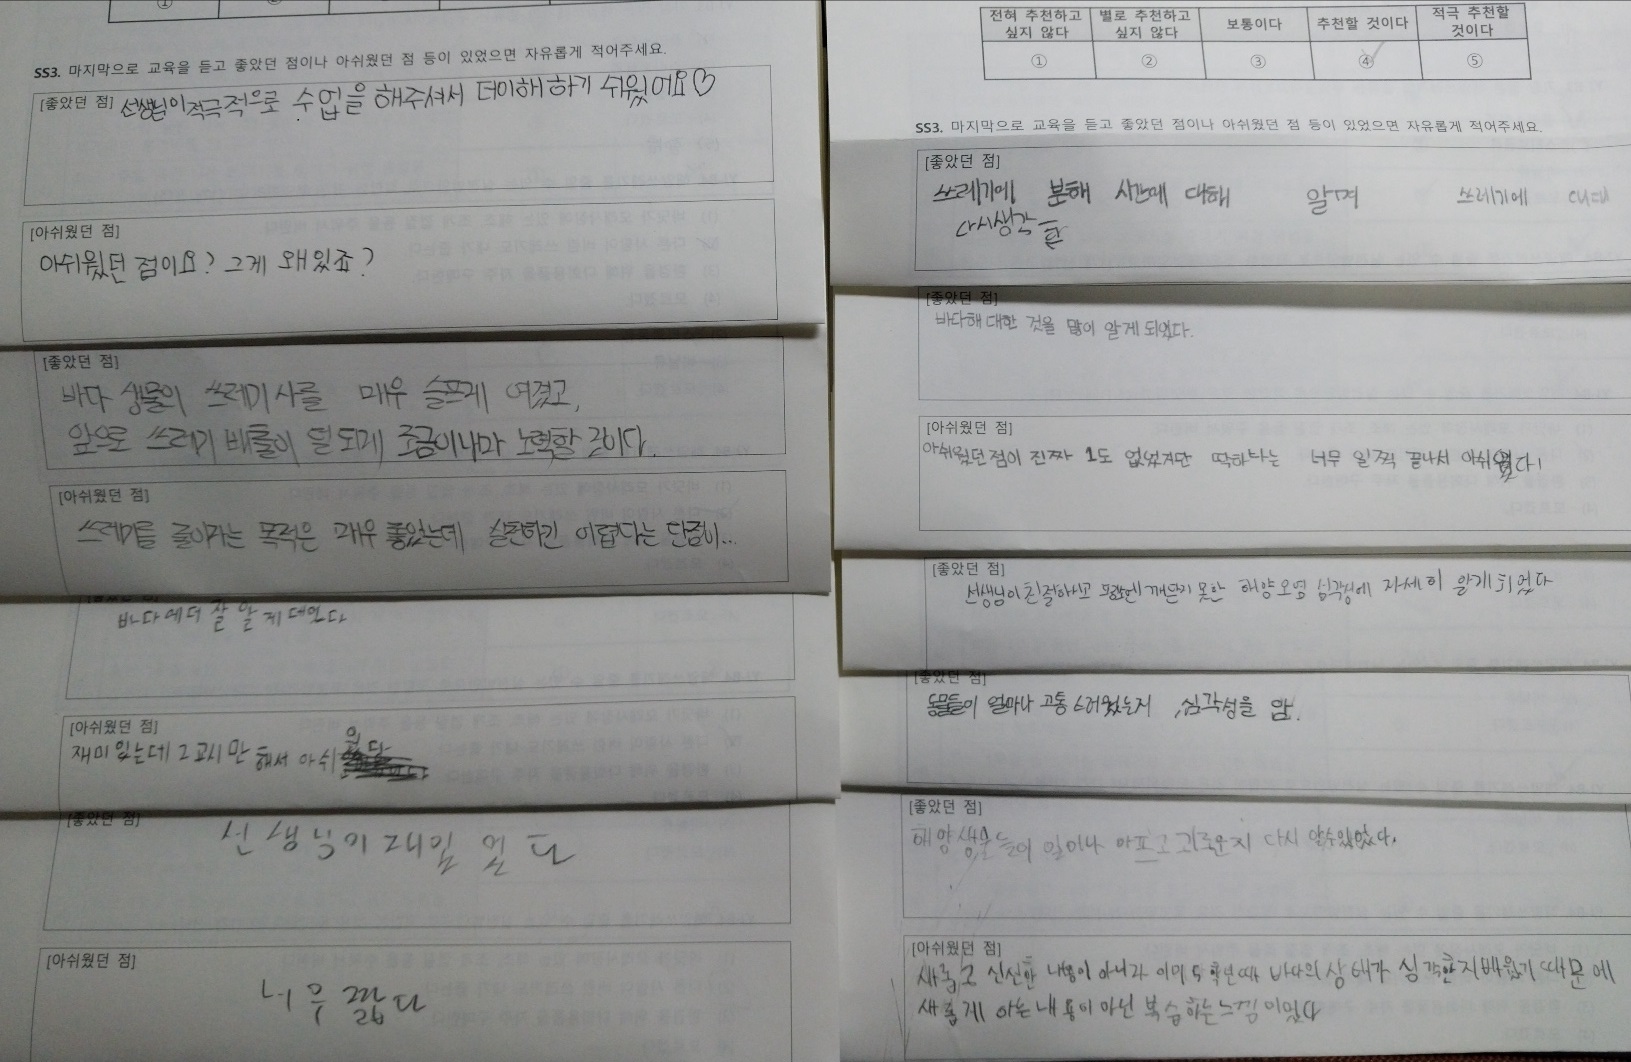 ①
SS3. 마지막으로 교육을 듣고 좋았던 점이나 아쉬웠던 점 등이 있었으면 자유롭게 적어주세요.
[좋았던 점] 선생님이 적극적으로 수업을 해주셔서 더이해하기 쉬웠어요♡
[아쉬웠던 점]
아쉬웠던 점이요? 그게 왜있죠?
[좋았던 점]
바다 생물의 쓰레기사를 매우 슬프게 여겼고,
앞으로 쓰레기 배출이 덜 되게 조금이나마 노력할 것이다.
[아쉬웠던 점]
쓰레기를 줄이자는 목적은 매우 좋았는데 실천하긴 어렵다는 단점이...
[좋았던 점]
바다에더 잘 알게 대었다
[아쉬웠던 점]
재미있는데 2교시만 해서 아쉬웠다
[좋았던 점]
선생님이 재밌었다
[아쉬웠던 점]
너무 짧다
전혀 추천하고 싶지 않다 별로 추천하고 싶지 않다 보통이다 추천할 것이다 적극 추천할 것이다
① ② ③ ④ ⑤
SS3. 마지막으로 교육을 듣고 좋았던 점이나 아쉬웠던 점 등이 있었으면 자유롭게 적어주세요.
[좋았던 점]
쓰레기에 분해 시간에 대해 알며 쓰레기에 대해
다시생각함
[좋았던 점]
바다해 대한 것을 많이 알게 되었다.
[아쉬웠던 점]
아쉬웠던점이 진짜 1도 없었지만 딱하나는 너무 일찍 끝나서 아쉬웠다!
[좋았던 점]
선생님이 친절하시고 평소에 깨닫지 못한 해양오염 심각성에 자세히 알게되었다
[좋았던 점]
동물들이 얼마나 고통스러웠는지, 심각성을 앎.
[좋았던 점]
해양생물들이 얼마나 아프고 괴로운지 다시 알수있었다.
[아쉬웠던 점]
새롭고 신선한 내용이 아니라 이미 5학년때 바다의 상태가 심각한지배웠기 때문에
새롭게 아는내용이 아닌 복습하는느낌이었다